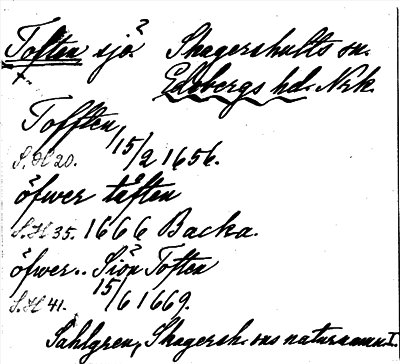 Toften sjö. Skagershults sn.
Edsbergs hd. Nrk.
Tofften, 15/2 1656.
S.H 20.
öfwer tåften
S.H 35. 1666 Backa.
öfwer.. Siön Toften
S.H 41. 15/6 1669.
Sahlgren, Skagersh. sns naturnamn I.